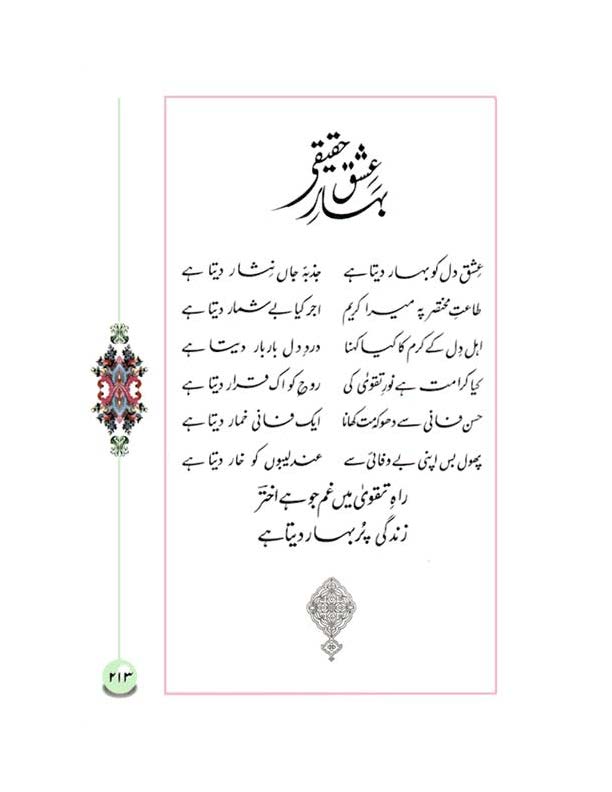 بہارِ عِشق حقیقی
عِشق دل کو بہار دیتا ہے جذبۂ جاں نِثار دیتا ہے
طاعتِ مختصر پہ میرا کریم اجر کیا بے شمار دیتا ہے
اہل دِل کے کرم کا کیا کہنا دردِ دل بار بار دیتا ہے
کیا کرامت ہے نورِ تقویٰ کی روح کو اک قرار دیتا ہے
حسن فانی سے دھوکہ مت کھانا ایک فانی خمار دیتا ہے
پھول بس اپنی بے وفائی سے عندلیبوں کو خار دیتا ہے
راہِ تقویٰ میں غم جو ہے اختر
زندگی پُر بہار دیتا ہے
۲۱۳